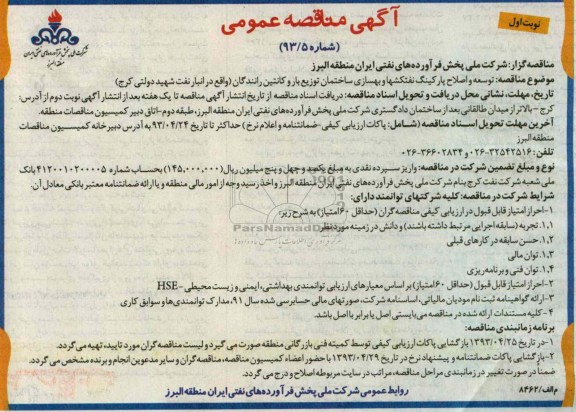 نوبت اول
آگهی مناقصه عمومی
(شماره ۹۳/۵)
شرکت ملی پخش فرآورده‌های نفتی ایران
منطقه البرز
مناقصه گزار: شرکت ملی پخش فرآورده‌های نفتی ایران منطقه البرز
موضوع مناقصه: توسعه و اصلاح پارکینگ نفتکشها و بهسازی ساختمان توزیع بار و کانتین رانندگان (واقع در انبار نفت شهید دولتی کرج)
تاریخ، مهلت، نشانی محل دریافت و تحویل اسناد مناقصه: دریافت اسناد مناقصه از تاریخ انتشار آگهی مناقصه تا یک هفته بعد از انتشار آگهی نوبت دوم از آدرس:
کرج - بالاتر از میدان طالقانی بعد از ساختمان دادگستری شرکت ملی پخش فرآورده‌های نفتی ایران منطقه البرز، طبقه دوم - اتاق دبیر کمیسیون مناقصات
آخرین مهلت تحویل اسناد مناقصه (شامل: پاکات ارزیابی کیفی - ضمانتنامه و اعلام نرخ) حداکثر تا تاریخ ۹۳/۰۴/۲۴ به آدرس دبیرخانه کمیسیون مناقصات
منطقه البرز
تلفن: ۳۲۵۴۲۵۱۶-۰۲۶ و ۳۶۶۰۲۸۳۴-۰۲۶
نوع و مبلغ تضمین شرکت در مناقصه: واریز سپرده نقدی به مبلغ یکصد و چهل و پنج میلیون ریال (۱۴۵,۰۰۰,۰۰۰) بحساب شماره ۴۱۲۰۰۱۰۲۰۰۰۵ بانک
ملی شعبه شرکت نفت کرج بنام شرکت ملی پخش فرآورده‌های نفتی ایران منطقه البرز و اخذ رسید وجه از امور مالی منطقه و یا ارائه ضمانتنامه معتبر بانکی معادل آن.
شرایط شرکت در مناقصه: کلیه شرکتهای توانمند دارای:
۱-احراز امتیاز قابل قبول در ارزیابی کیفی مناقصه گران (حداقل ۶۰ امتیاز) به شرح زیر:
۱,۱. تجربه (سابقه اجرایی مرتبط داشته باشند) و دانش در زمینه مورد نظر
۱,۲. حسن سابقه در کارهای قبلی
۱,۳. توان مالی
۱,۴. توان فنی و برنامه ریزی
۲-احراز امتیاز قابل قبول (حداقل ۶۰ امتیاز) بر اساس معیارهای ارزیابی توانمندی بهداشتی، ایمنی و زیست محیطی -HSE
۳-ارائه گواهینامه ثبت نام مودیان مالیاتی، اساسنامه شرکت، صورتهای مالی حسابرسی شده سال ۹۱، مدارک توانمندی‌ها و سوابق کاری
۴- کلیه مستندات ارائه شده در مناقصه می‌بایستی اصل یا برابر با اصل باشد.
برنامه زمانبندی مناقصه:
۱-در تاریخ ۱۳۹۳/۰۴/۲۵ بازگشایی پاکات ارزیابی کیفی توسط کمیته فنی بازرگانی منطقه صورت می گیرد و لیست مناقصه گران مورد تایید، تهیه می گردد.
۲-بازگشایی پاکات ضمانتنامه و پیشنهاد نرخ در تاریخ ۱۳۹۳/۰۴/۲۹ با حضور اعضاء کمیسیون مناقصه، مناقصه گران و سایر مدعوین انجام و برنده مشخص می گردد.
ضمنا در صورت تغییر در زمانبندی مراحل مناقصه، مراتب در سایت مربوطه اصلاح و درج می گردد.
روابط عمومی شرکت ملی پخش فرآورده‌های نفتی ایران منطقه البرز
م الف/۸۴۶۲
ParsNamadData